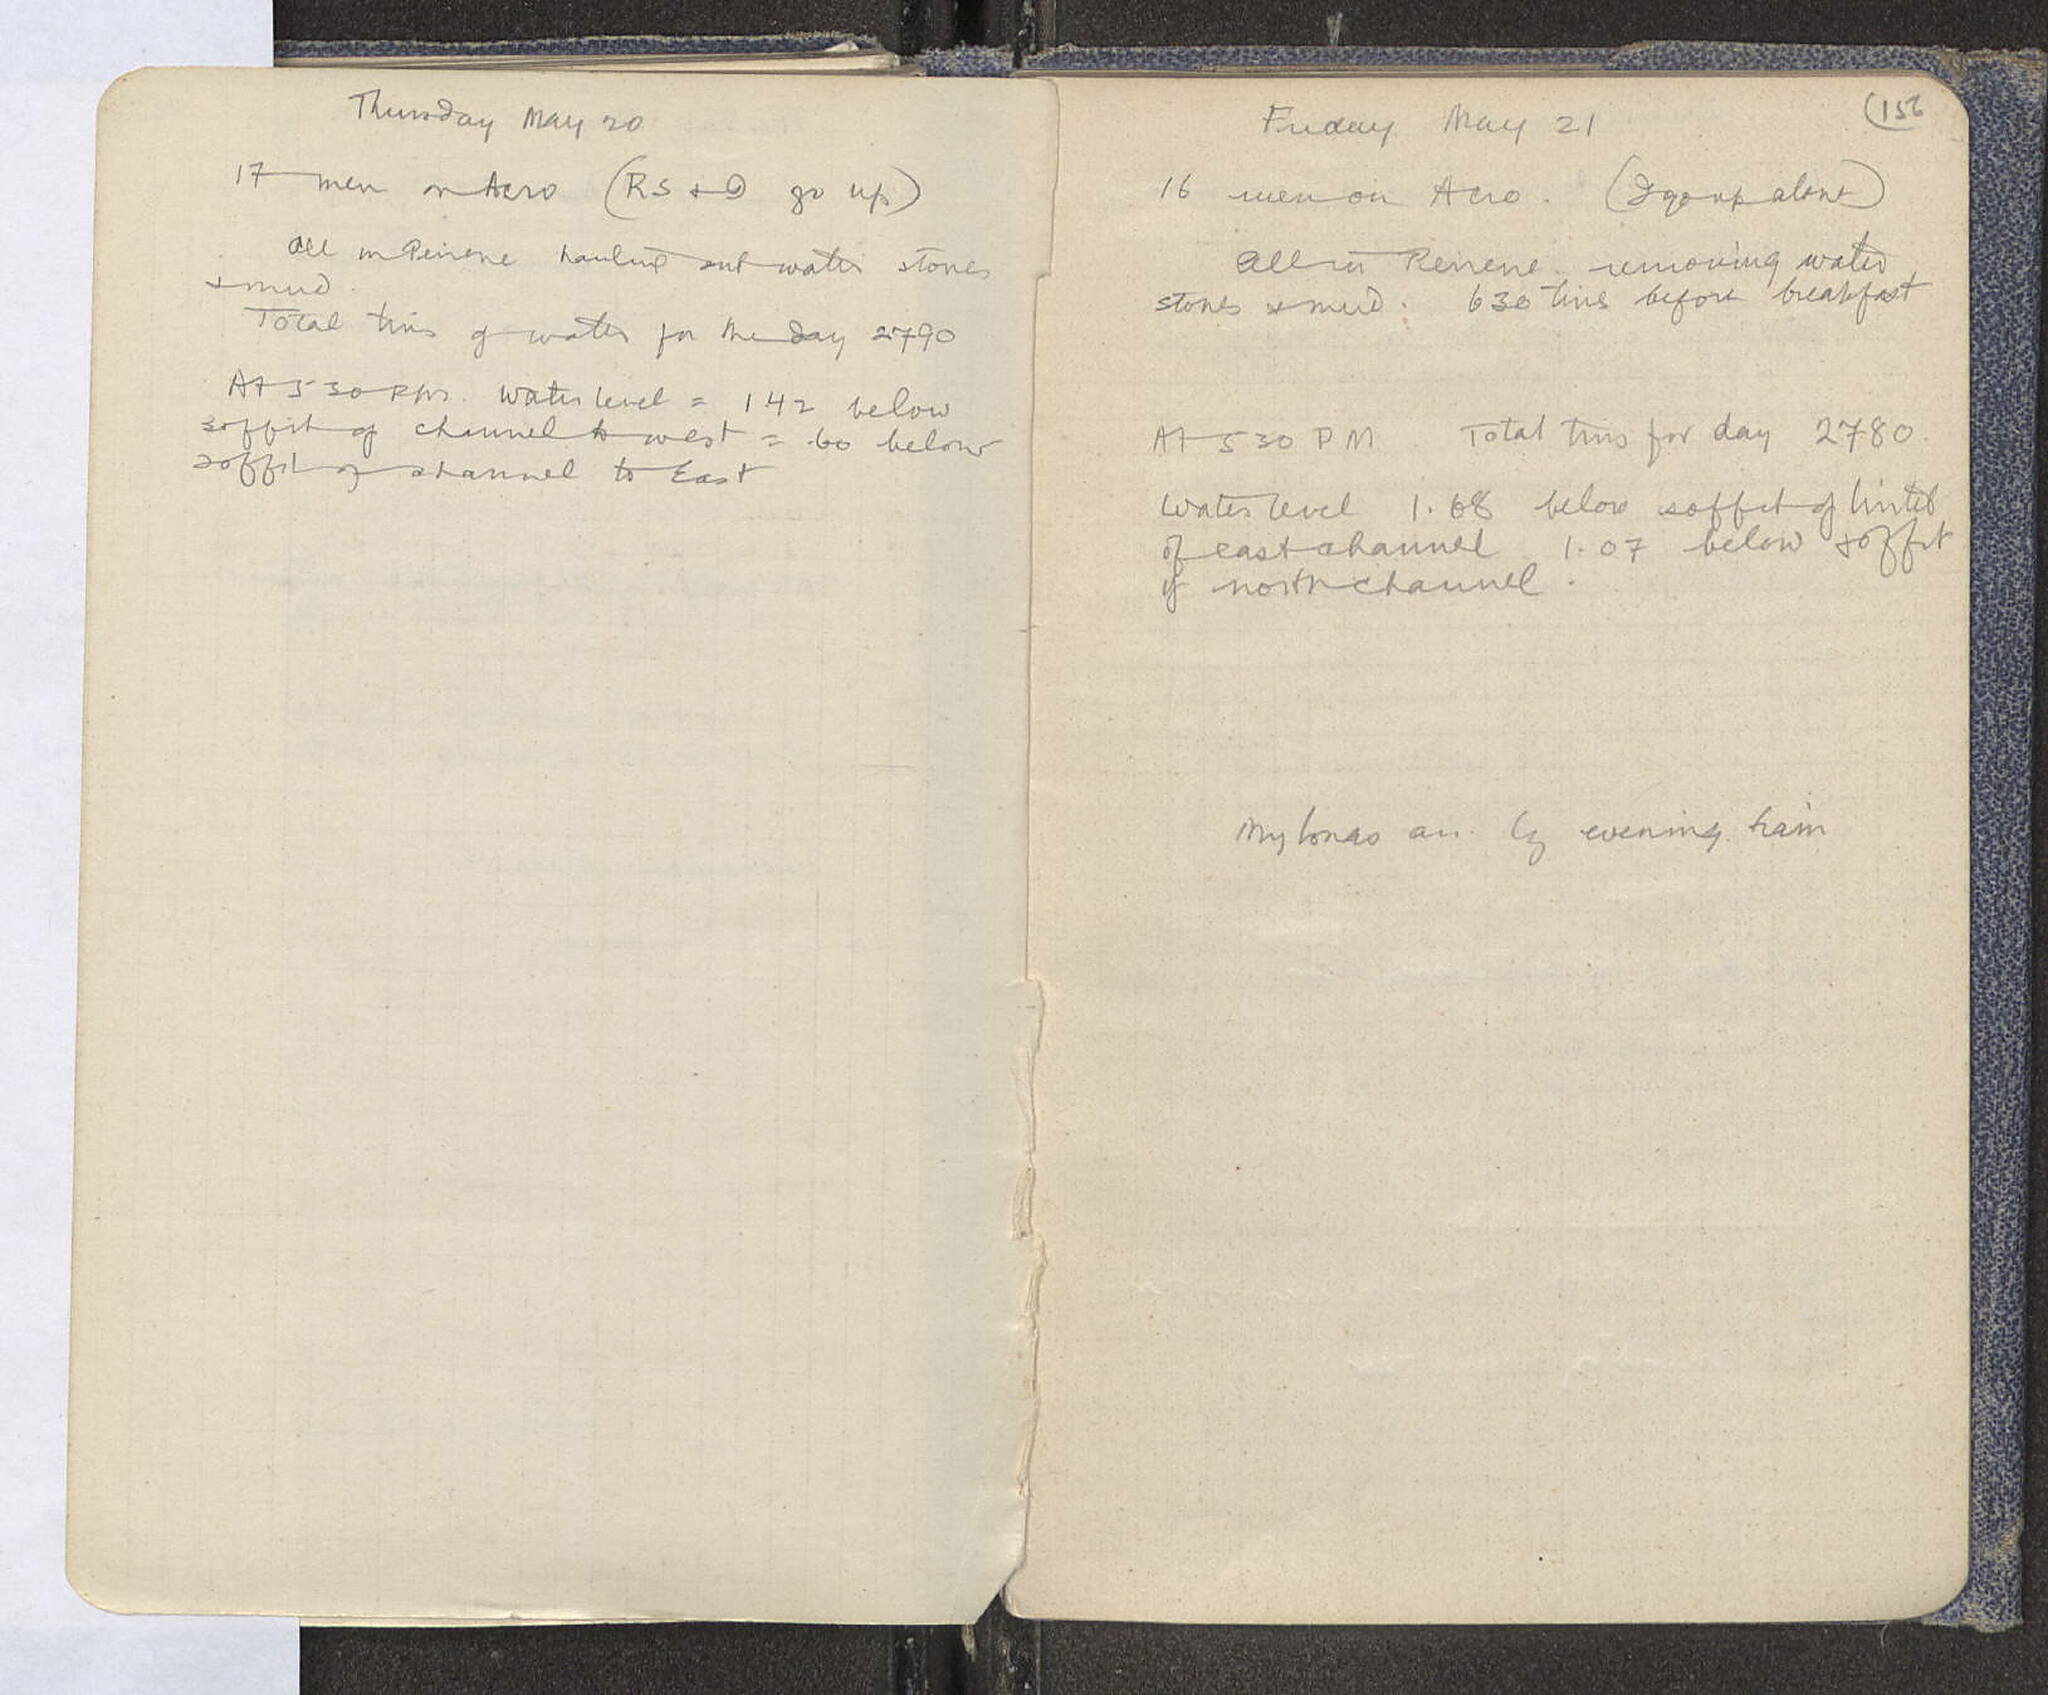 Thursday May 20
17 men on Acro (RS & I go up)
All in Peirene hauling out water stones
& mud.
Total tins of water for the day 2790
At 5 30 P.M. Water level = 1.42 below
soffit of channel to west = .60 below
soffit of channel to East
156
Friday May 21
16 men on Acro. (I go up alone)
All in Peirene removing water
stones & mud. 630 tins before breakfast
At 5 30 P M Total tins for day 2780.
Water level 1.68 below soffit of lintel
of east channel 1.07 below soffit
of north channel.
Mylonas arr. by evening train